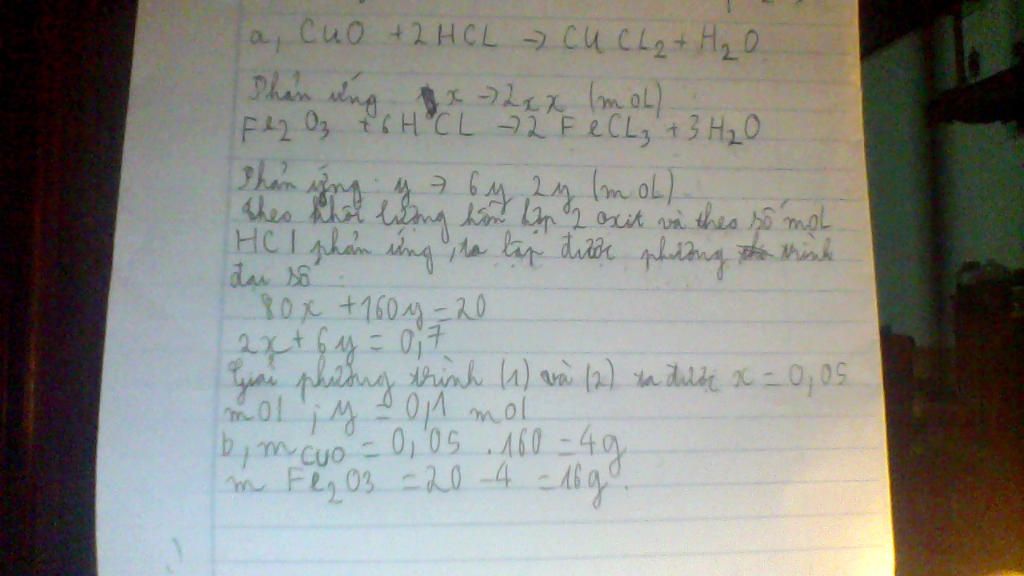 a, CuO + 2HCL → CUCL2 + H2O
Phản ứng x → 2x x (mOL)
Fe2O3 + 6HCL → 2FeCL3 + 3H2O
Phản ứng y → 6y 2y (mOL)
theo khối lượng hỗn hợp 2 oxit và theo số mol
HCl phản ứng, ta lập được phương trình
đại số :
80x + 160y = 20
2x + 6y = 0,7
Giải phương trình (1) và (2) ta được x = 0,05
mol ; y = 0,1 mol
b, mCUO = 0,05 . 160 = 4g
m Fe2O3 = 20 - 4 = 16g.